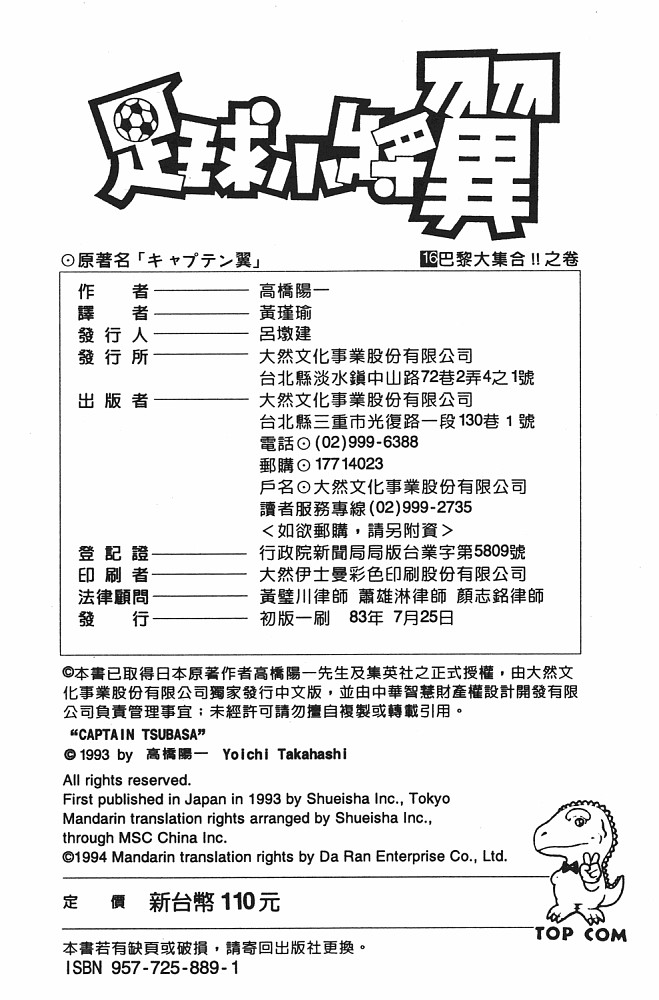 足球小將翼
⊙原著名「キャプテン翼」 16巴黎大集合!!之卷
作者 高橋陽一
譯者 黃瑾瑜
發行人 呂墩建
發行所 大然文化事業股份有限公司
台北縣淡水鎮中山路72巷2弄4之1號
出版者 大然文化事業股份有限公司
台北縣三重市光復路一段130巷1號
電話⊙(02)999-6388
郵購⊙17714023
戶名⊙大然文化事業股份有限公司
讀者服務專線(02)999-2735
<如欲郵購，請另附資>
登記證 行政院新聞局局版台業字第5809號
印刷者 大然伊士曼彩色印刷股份有限公司
法律顧問 黃璧川律師 蕭雄淋律師 顏志銘律師
發行 初版一刷 83年7月25日
©本書已取得日本原著作者高橋陽一先生及集英社之正式授權，由大然文
化事業股份有限公司獨家發行中文版，並由中華智慧財產權設計開發有限
公司負責管理事宜；未經許可請勿擅自複製或轉載引用。
“CAPTAIN TSUBASA”
© 1993 by 高橋陽一 Yoichi Takahashi
All rights reserved.
First published in Japan in 1993 by Shueisha Inc., Tokyo
Mandarin translation rights arranged by Shueisha Inc.,
through MSC China Inc.
©1994 Mandarin translation rights by Da Ran Enterprise Co., Ltd.
定價 新台幣110元
TOP COM
本書若有缺頁或破損，請寄回出版社更換。
ISBN 957-725-889-1